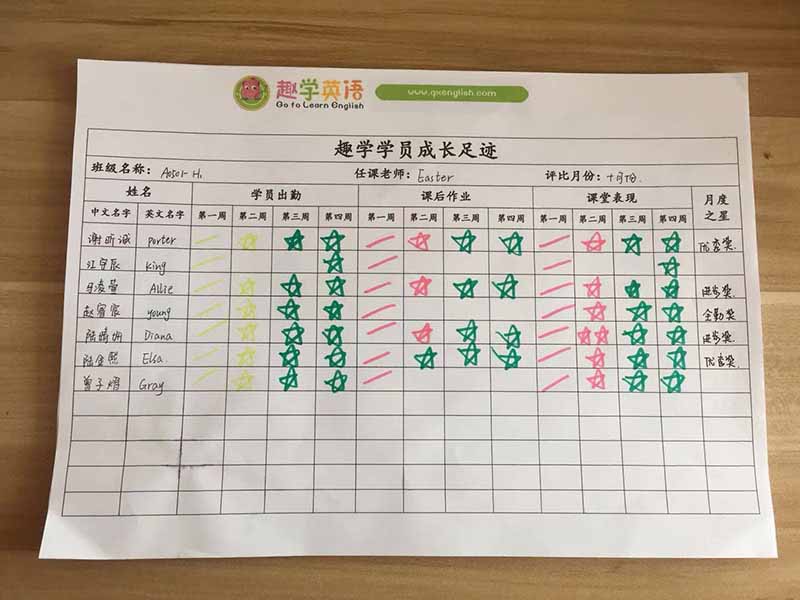 趣学英语
Go to Learn English
www.qxenglish.com
趣学学员成长足迹
班级名称: 任课老师: Easter 评比月份: 十月份.
姓名 学员出勤 课后作业 课堂表现 月度之星
中文名字 英文名字 第一周 第二周 第三周 第四周 第一周 第二周 第三周 第四周 第一周 第二周 第三周 第四周
谢昕诚 porter 优秀奖.
江守辰 king
Allie 进步奖.
赵宥宸 young 全勤奖
陆婧炯 Diana 进步奖.
Elsa. 优秀奖.
曾子熠 Gray